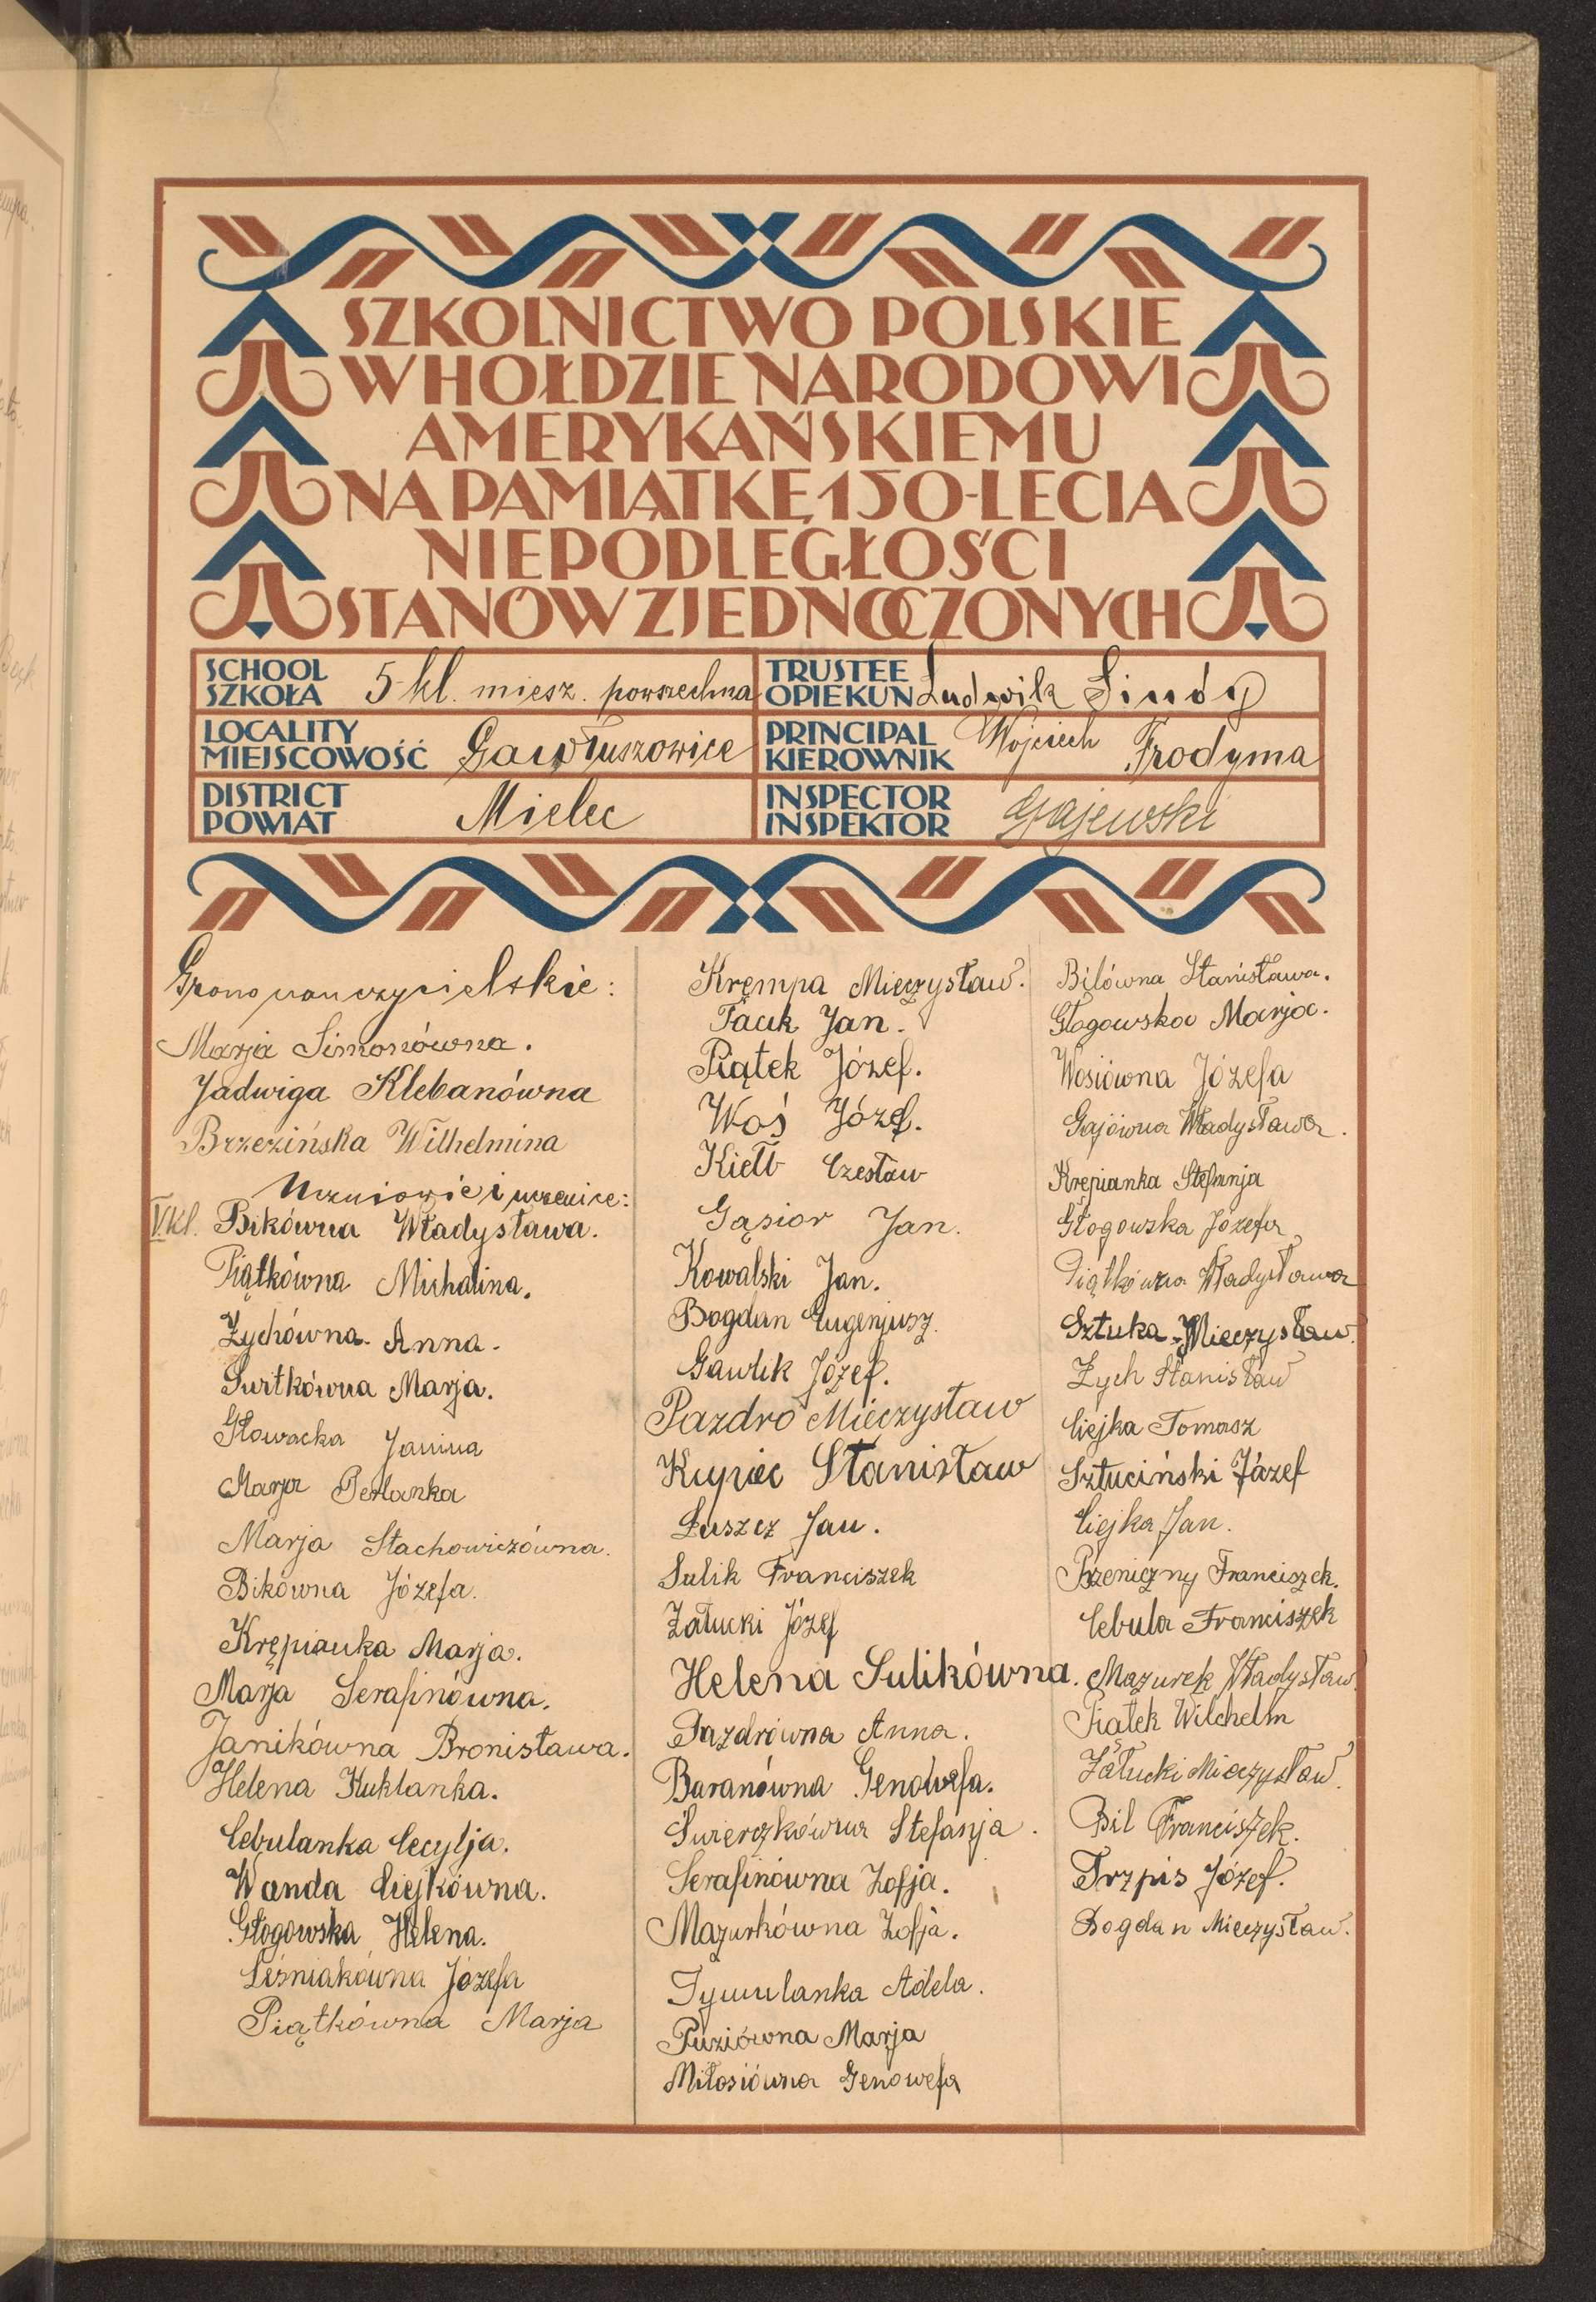 SZKOLNICTWO POLSKIE
W HOŁDZIE NARODOWI
AMERYKAŃSKIEMU
NA PAMIĄTKĘ 150-LECIA
NIEPODLEGŁOŚCI
STANÓW ZJEDNOCZONYCH
SCHOOL
SZKOŁA 5-kl. miesz. powszechna
TRUSTEE
OPIEKUN Ludwik
LOCALITY
MIEJSCOWOŚĆ Gawłuszowice
PRINCIPAL
KIEROWNIK Wojciech Frodyma
DISTRICT
POWIAT Mielec
INSPECTOR
INSPEKTOR Gajewski
Grono nauczycielskie:
Marja Simonówna.
Jadwiga Klebanówna
Brzezińska Wilhelmina
Uczniowie i uczenice:
V. kl. Bikówna Władysława.
Piątkówna Michalina.
Zychówna Anna.
Marja.
Głowacka Janina
Marja Perlanka
Marja Stachowiczówna.
Bikówna Józefa.
Krępianka Marja.
Marja Serafinówna.
Janikówna Bronisława.
Helena Kuklanka.
Cebulanka Cecylja.
Wanda Ciejkówna.
Głogowska Helena.
Leśniakówna Józefa
Piątkówna Marja
Krempa Mieczysław.
Jan.
Piątek Józef.
Woś Józef.
Kiełb Czesław
Gąsior Jan.
Kowalski Jan.
Bogdan Eugenjusz.
Gawlik Józef.
Pazdro Mieczysław
Kupiec Stanisław
Łuszcz Jan.
Sulik Franciszek
Załucki Józef
Helena Sulikówna.
Pazdrówna Anna.
Baranówna Genowefa.
Świerczkówna Stefanja.
Serafinówna Zofja.
Mazurkówna Zofja.
Tymulanka Adela.
Puziówna Marja
Miłosiówna Genowefa
Bilówna Stanisława.
Głogowska Marja.
Wosiówna Józefa
Gajówna Władysława.
Krępianka Stefanja
Głogowska Józefa
Piątkówna Władysława
Sztuka Mieczysław.
Zych Stanisław
Ciejka Tomasz
Sztuciński Józef
Ciejka Jan.
Pszeniczny Franciszek.
Cebula Franciszek
Mazurek Władysław.
Piątek Wilchelm
Załucki Mieczysław.
Bil Franciszek.
Trzpis Józef.
Bogdan Mieczysław.